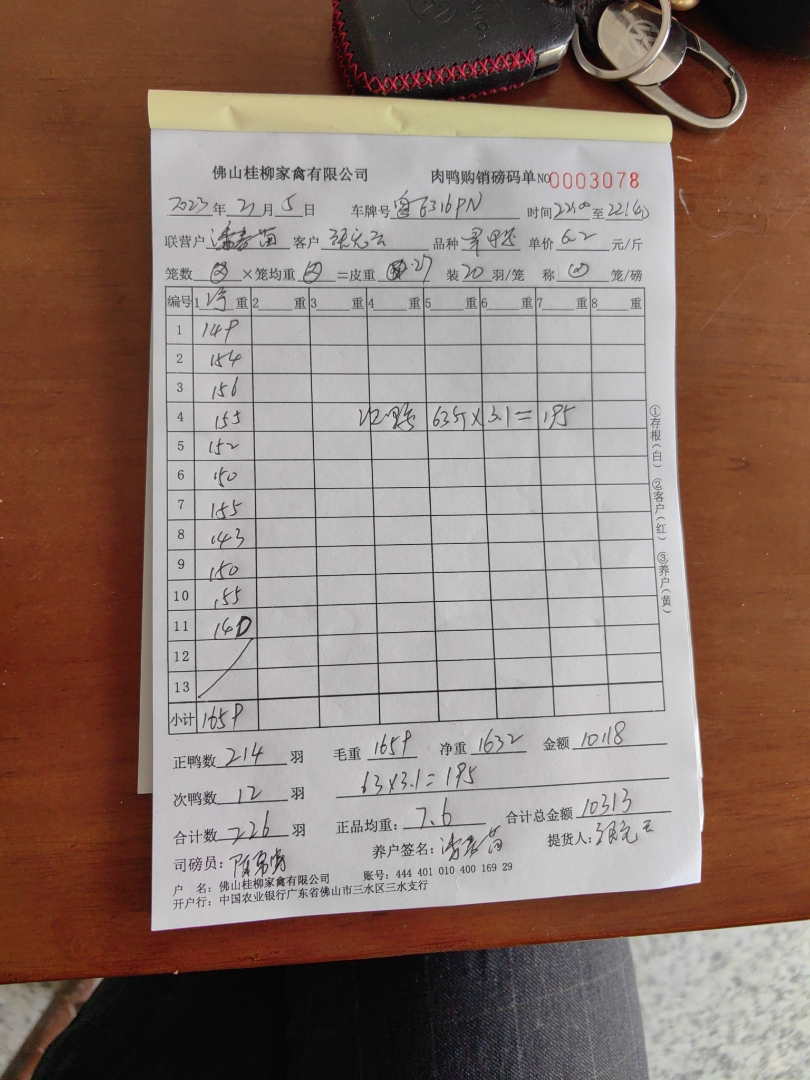 佛山桂柳家禽有限公司 肉鸭购销磅码单 NO 0003078
2023年 月5日 车牌号 粤6316PN 时间 至
联营户 苗 客户 品种 单价6.2元/斤
笼数 ×笼均重 =皮重 27 装20羽/笼 称 笼/磅
编号 1 重 2 重 3 重 4 重 5 重 6 重 7 重 8 重
1 149
2 154
3 156
4 155 次鸭 63斤×3.1=195
5 152
6 150
7 155
8 143
9 150
10 155
11 140
12
13
小计 1659
①存根(白) ②客户(红) ③养户(黄)
正鸭数214羽 毛重1659 净重1632 金额10118
次鸭数12羽 63×3.1=195
合计数226羽 正品均重:7.6 合计总金额10313
司磅员: 养户签名: 苗 提货人:
户 名:佛山桂柳家禽有限公司 账号:444 401 010 400 169 29
开户行:中国农业银行广东省佛山市三水区三水支行